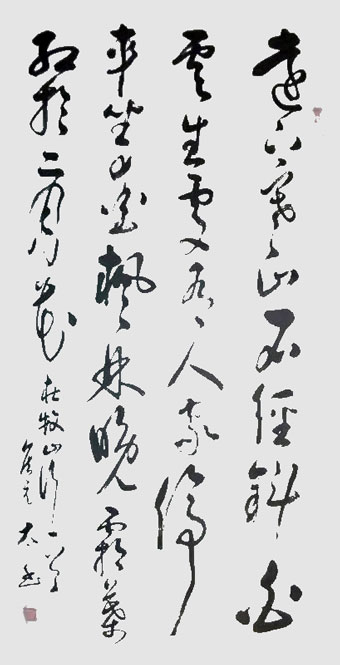 遠上寒山石徑斜白
雲生處有人家停
車坐愛楓林晚霜葉
紅於二月花
杜牧山行一首